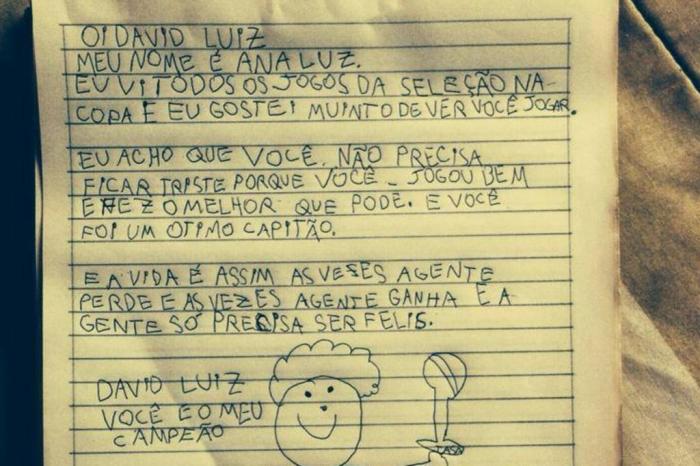 OI DAVID LUIZ
MEU NOME É ANA LUZ.
EU VI TODOS OS JOGOS DA SELEÇÃO NA
COPA E EU GOSTEI MUINTO DE VER VOCÊ JOGAR.
EU ACHO QUE VOCÊ. NÃO PRECISA
FICAR TRISTE PORQUE VOCÊ - JOGOU BEM
E FEZ O MELHOR QUE PODE. E VOCÊ
FOI UM OTIMO CAPITÃO.
E A VIDA É ASSIM AS VESES AGENTE
PERDE E AS VEZES AGENTE GANHA E A
GENTE SÓ PRECISA SER FELIS.
DAVID LUIZ
VOCÊ E O MEU
CAMPEÃO